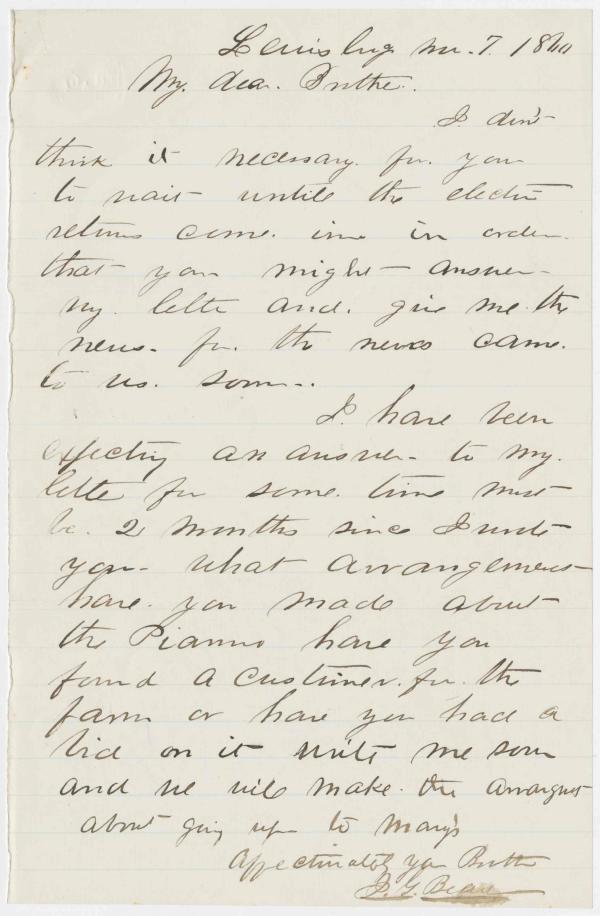 Lewisburg Nov. 7. 1860
My. dear. Brother.
I. don't
think it necessary. for. you
to wait untill the election
returns come. inn in order.
that you might answer
my. letter and. give me. the
news. for. the news came.
to us. soon..
I. have been
expecting an answer to my.
letter for some. time must
be. 2 Months since I wrote
you. what arrangements
have. you made about
the Pianno have you
found a Custimer. for. the
farm or have you had a
bid on it write me soon
and we will make. the arrangmt
about going up to Mary's
Affectinately your Brother
J. G. Beave